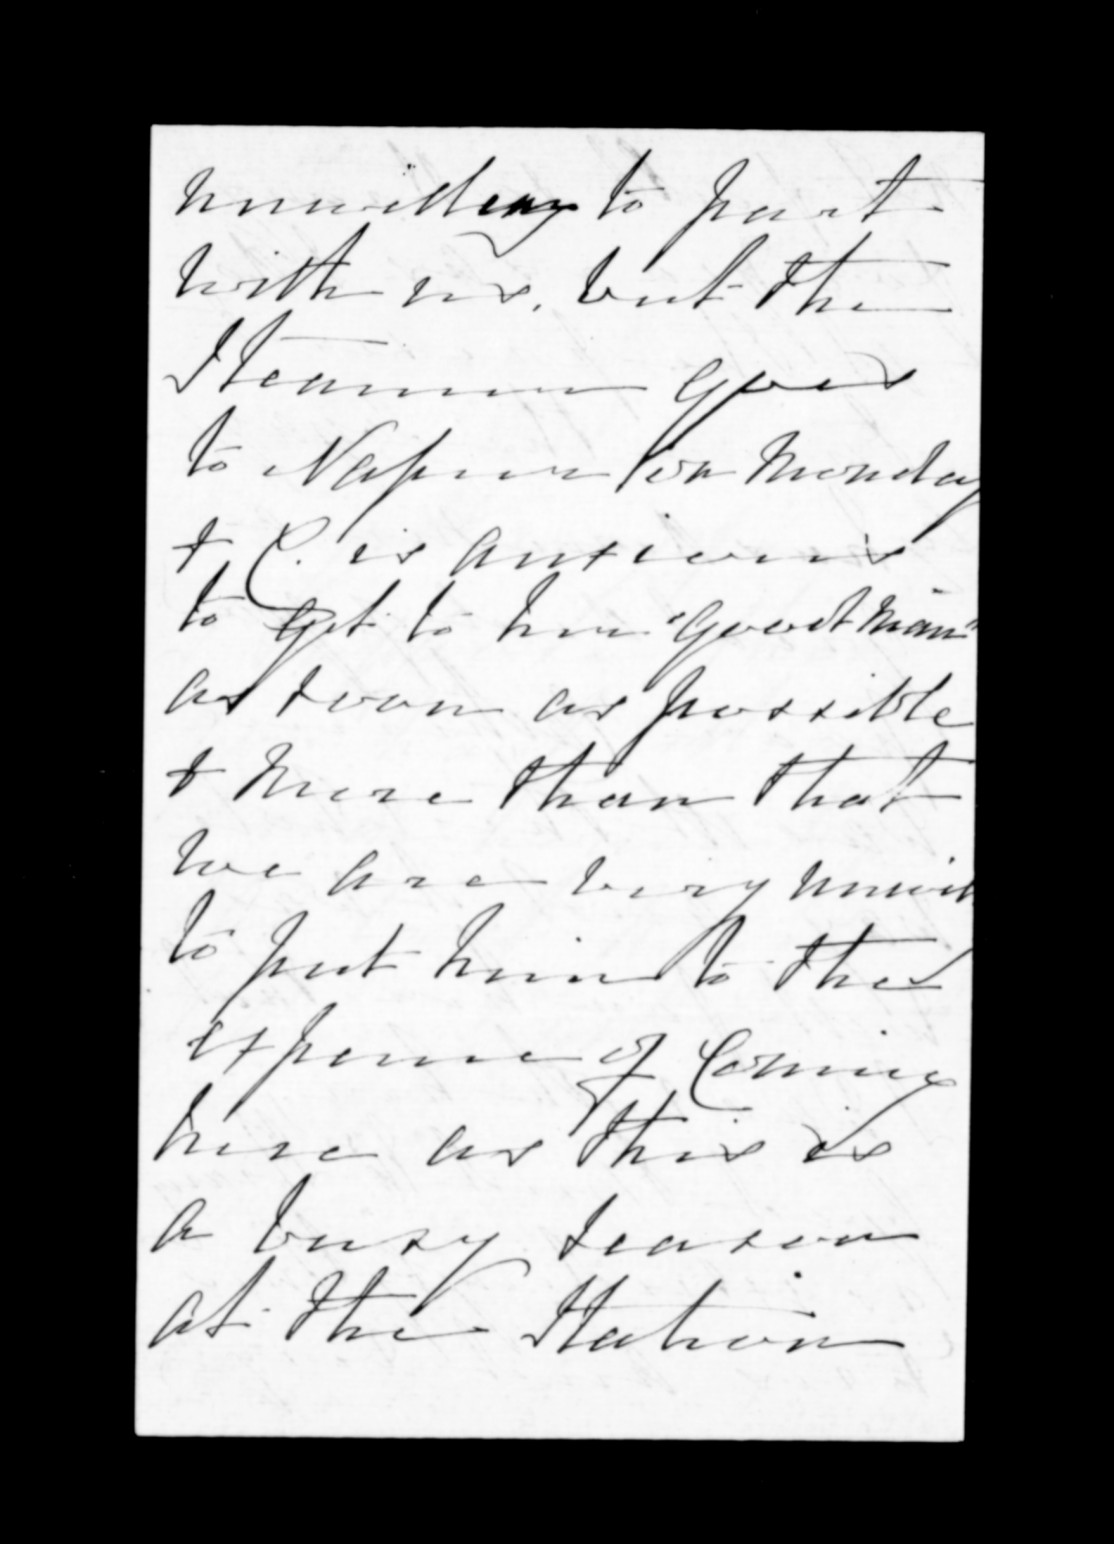 unwilling to part
with us, but the
Steamer goes
to Napier on Monday
& C. is anxious
to get to her "good man"
as soon as possible
& more than that
we are very unwill
to put him to the
expense of coming
here as this is
a busy season
at the Station